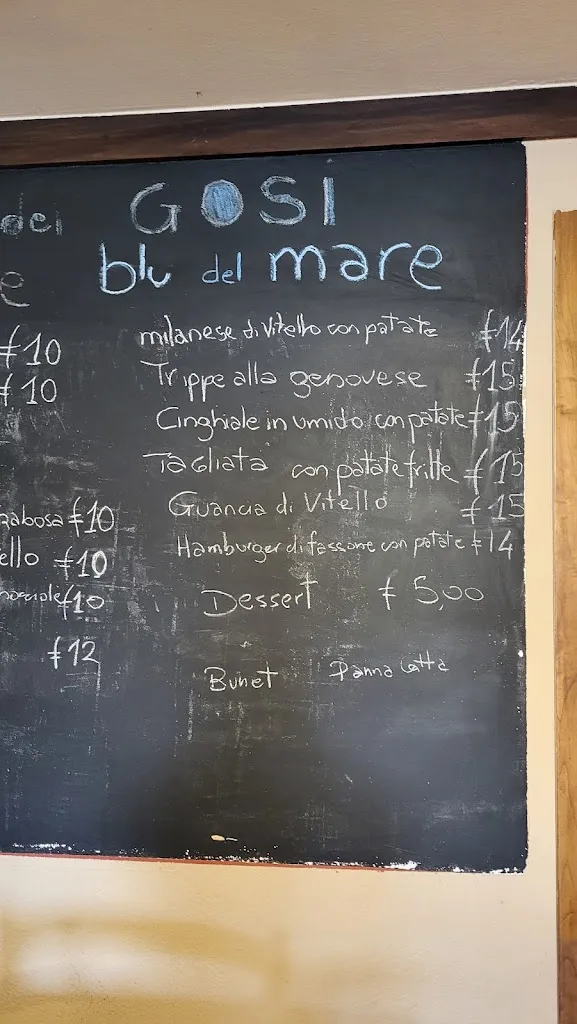 dei GOSI
e blu del mare
milanese di Vitello con patate €14
€10
Trippe alla genovese €15
€10
Cinghiale in umido con patate €15
Tagliata con patate fritte €15
Guancia di Vitello €15
rabosa €10
Hamburger di fassone con patate €14
ello €10
Dessert € 5,00
€10
€12
Bunet Panna Cotta